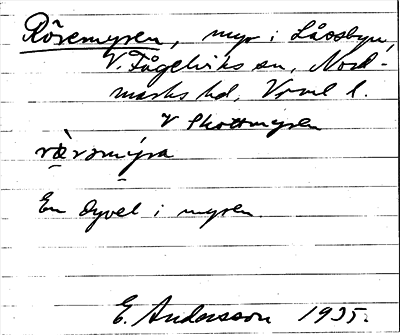 Rösemyren, myr i Låssbyn,
V. Fågelviks sn, Nord-
marks hd, Vrml l.
V Skottmyren
En dyvel i myren
E. Andersson 1935.